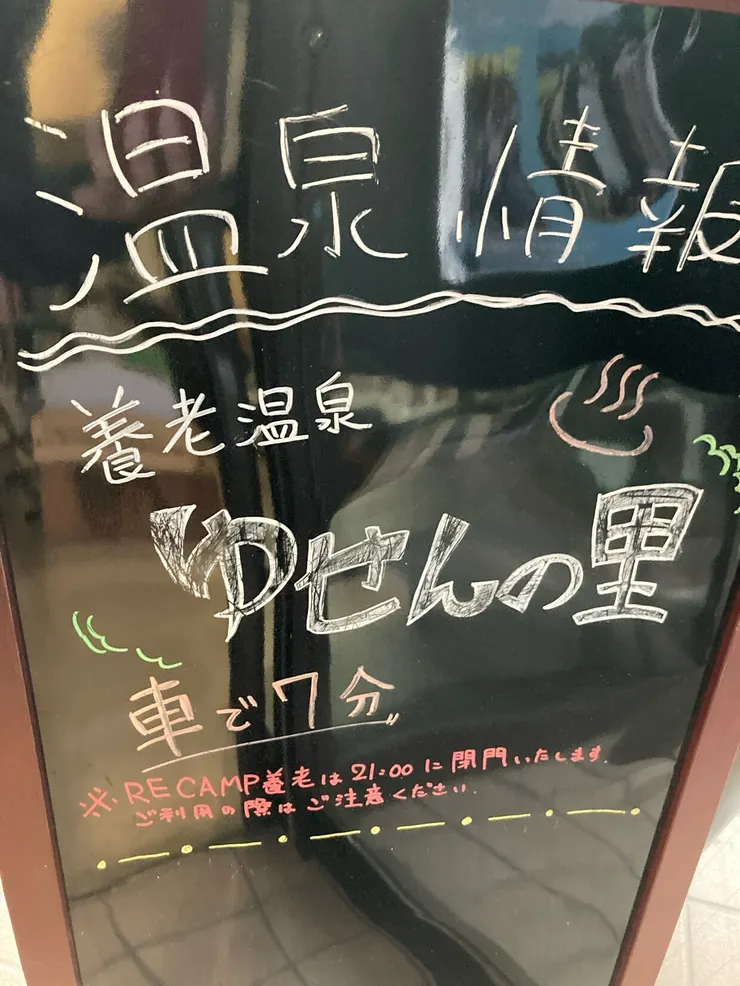 温泉情報
養老温泉
ゆせんの里
車で7分
※RECAMP養老は21:00に閉門いたします。
ご利用の際はご注意ください。